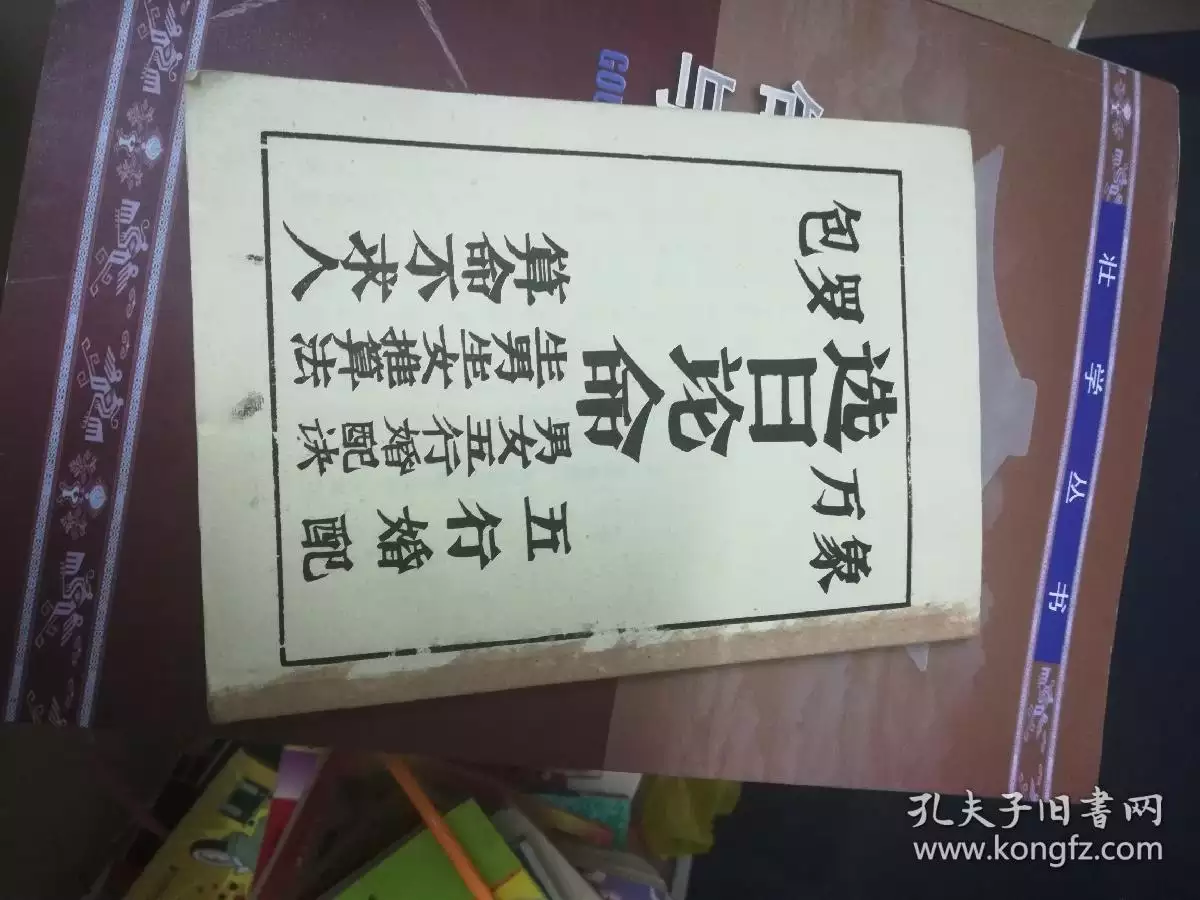 包罗万象
选日论命
算命不求人
生男生女推算法
男女五行婚配诀
五行婚配
壮学丛书
GOU
与
孔夫子旧書网
www.kongfz.com